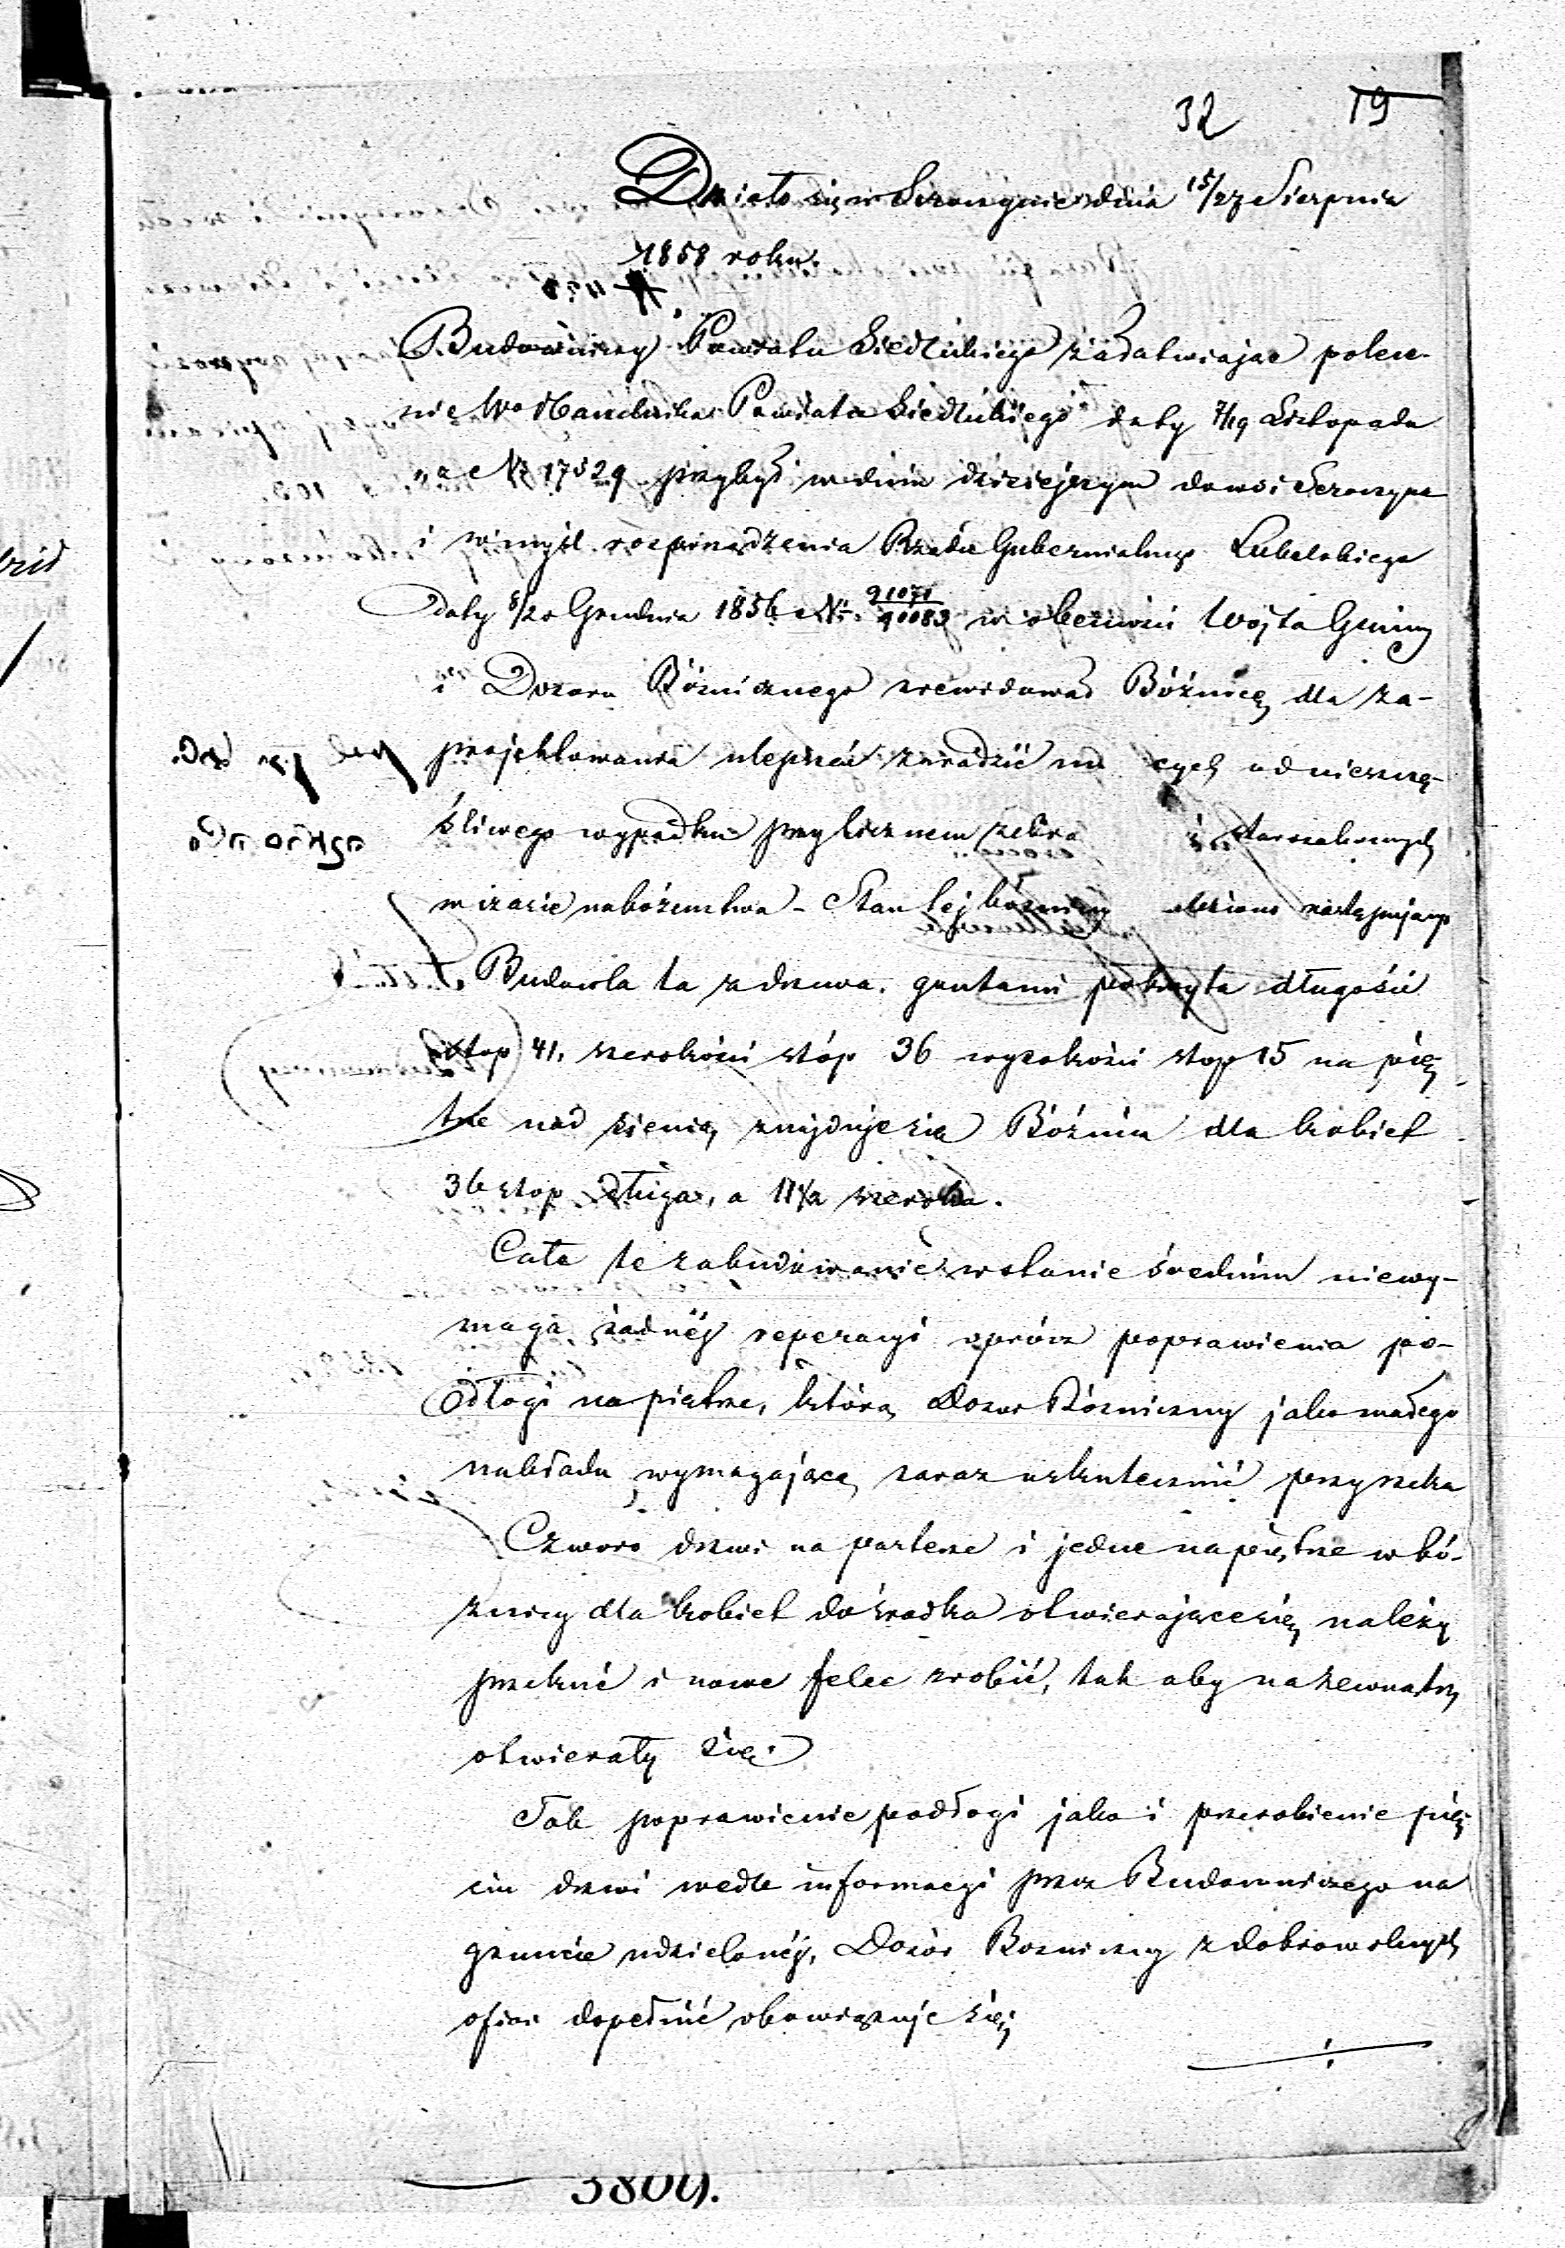 32 19
Działo się w Seroczynie dnia 15/27 Sierpnia
1858 roku.
Budowniczy Powiatu Siedleckiego załatwiając polece-
nie Wo Naczelnika Powiatu Siedleckiego daty 7/19 Listopada
za Nr 17529 przybył w dniu dzisiejszym do wsi Seroczyna
i w myśl rozporządzenia Rządu Gubernialnego Lubelskiego
daty 8/20 Grudnia 1856 Nr. 91071/90083 w obecności Wójta Gminy
i Dozoru Bóżnicznego zrewidował Bóźnicę dla za-
projektowania ulepszeń zaradzić cych od nieszczę-
śliwego wypadku przy licznem zebra i starozakonnych
w czasie nabożeństwa - Stan tej bóżnicy następujący
Budowla ta z drzewa, gontami pokryta długości
stop 41, szerokości stóp 36 wysokości stop 15 na pię-
trze nad sienią znajduje się Bóźnica dla kobiet
36 stop długa, a 11 1/2 szeroka.
Całe te zabudowanie w stanie średnim niewy-
maga żadnéj reperacyi oprócz poprawienia po-
dłogi na piętrze, którą Dozor Bózniczny jako małego
nakładu wymagającą zaraz uskutecznić przyrzeka
Czworo drzwi na parterze i jedne na piętrze w bó-
żnicy dla kobiet do środka otwierające się należy
przekuć i nowe felce zrobić, tak aby na zewnątrz
otwierały się.
Tak poprawienie podłogi jako i przerobienie pię-
ciu drzwi wedle informacyi przez Budowniczego na
gruncie udzielonéj, Dozór Bozniczny z dobrowolnych
ofiar dopełnić obowiązuje się
3809.